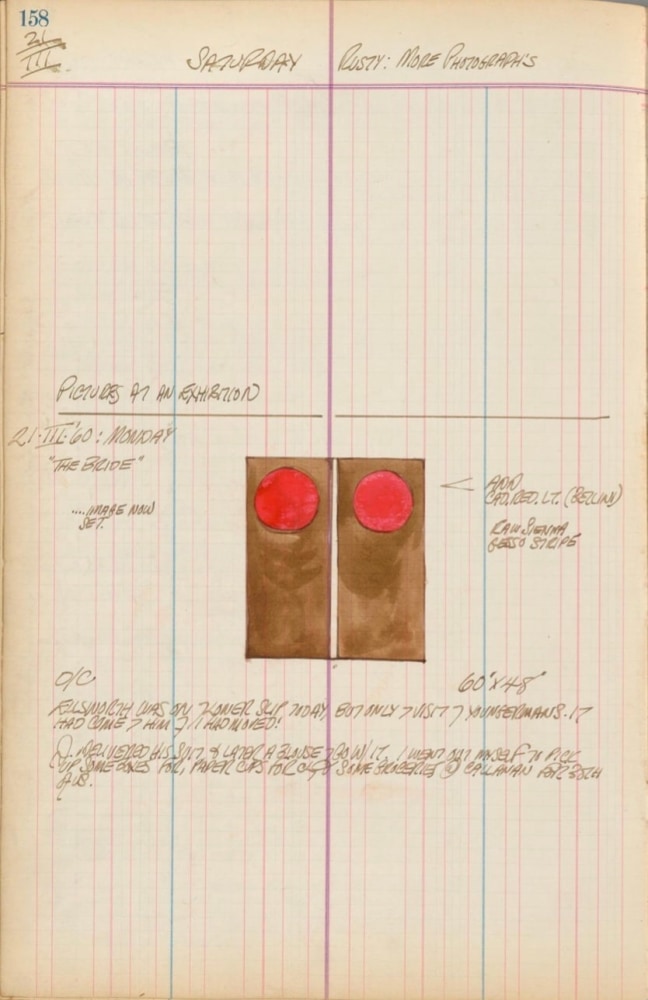 158
21
III
SATURDAY RUSTY: MORE PHOTOGRAPH'S
PICTURES AT AN EXHIBITION
21·III·'60: MONDAY
"THE BRIDE"
....IMAGE NOW
SET.
ADD
CAD. RED. LT. (BELLINI)
RAW SIENNA
GESSO STRIPE
O/C
60"X48"
ELLSWORTH WAS ON SLIP TODAY, BUT ONLY VISIT YOUNGERMANS. IT
HAD COME HIM I HAD MOVED!
DELIVERED HIS SUIT & LATER A BLOUSE GO W/ IT. I WENT OUT MYSELF TO PICK
UP SOME ONES FOR, PAPER CUPS FOR SOME GROCERIES @ CALLAHAN FOR 35TH